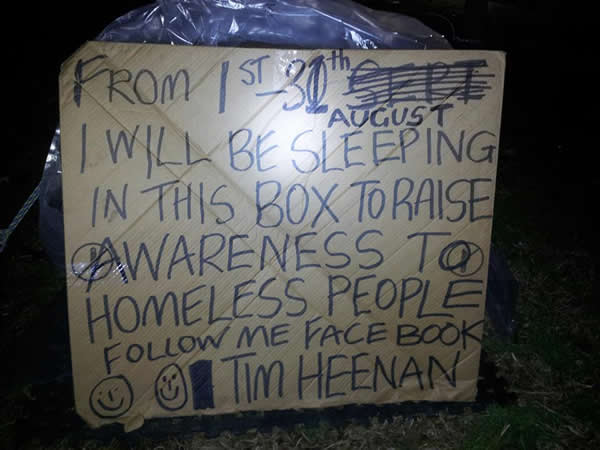 FROM 1ST-30th SEPT
AUGUST
I WILL BE SLEEPING
IN THIS BOX TO RAISE
AWARENESS TO
HOMELESS PEOPLE
FOLLOW ME FACE BOOK
TIM HEENAN